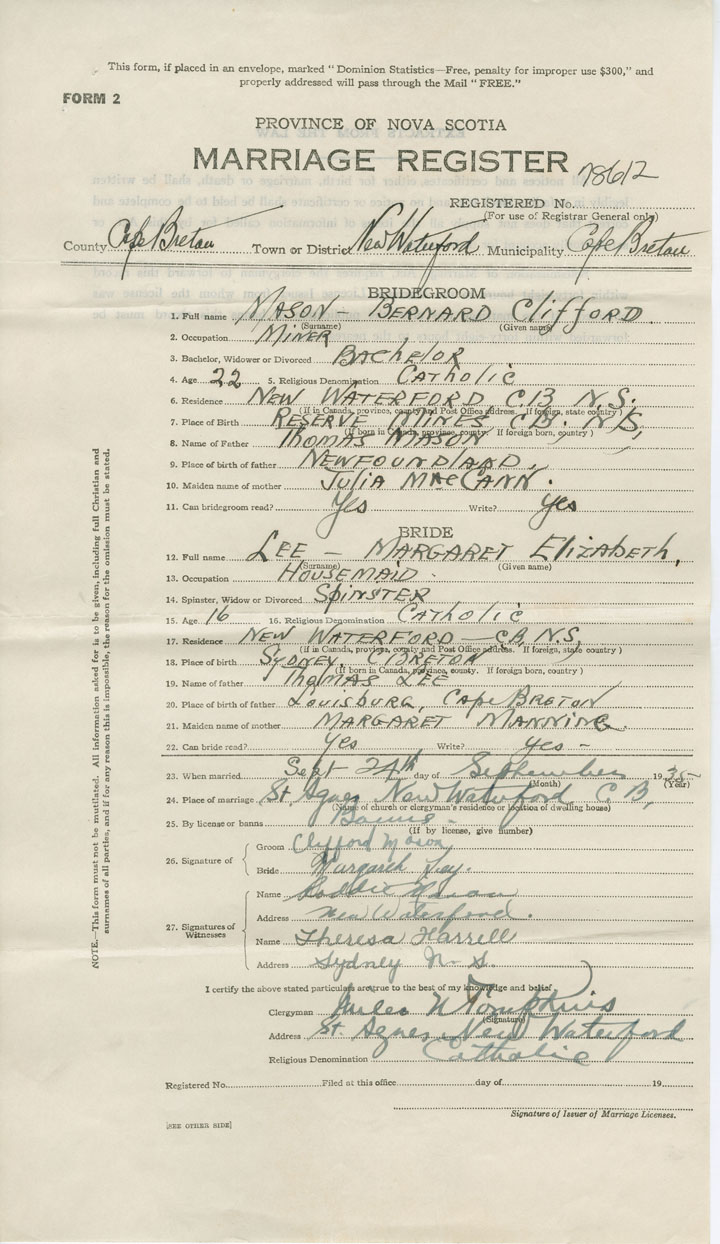 This form, if placed in an envelope, marked "Dominion Statistics—Free, penalty for improper use $300," and
properly addressed will pass through the Mail "FREE."
FORM 2
PROVINCE OF NOVA SCOTIA
MARRIAGE REGISTER
78612
REGISTERED No.
(For use of Registrar General only)
County Cape Breton Town or District New Waterford Municipality Cape Breton
BRIDEGROOM
1. Full name MASON - BERNARD Clifford
(Surname) (Given name)
2. Occupation MINER
3. Bachelor, Widower or Divorced BAChElOR
4. Age 22 5. Religious Denomination CATHOLIC
6. Residence NEW WATERFORD C.B. N.S.
(If in Canada, province, county and Post Office address. If foreign, state country)
7. Place of Birth RESERVE MINES, C.B. N.S,
(If born in Canada, province, county. If foreign born, country)
8. Name of Father Thomas MASON
9. Place of birth of father NEWFOUNDlAND.
10. Maiden name of mother JUliA MacCANN.
11. Can bridegroom read? Yes Write? yes
BRIDE
12. Full name LEE - MARGARET ElizABETH,
(Surname) (Given name)
13. Occupation HOUSEMAID
14. Spinster, Widow or Divorced SPINSTER
15. Age 16 16. Religious Denomination CATHOLIC
17. Residence NEW WATERFORD - C.B. N.S,
(If in Canada, province, county and Post Office address. If foreign, state country)
18. Place of birth SYDNEY, C. BRETON
(If born in Canada, province, county. If foreign born, country)
19. Name of father Thomas LEE
20. Place of birth of father LOUISBURG, CAPE BRETON
21. Maiden name of mother MARGARET MANNING
22. Can bride read? yes Write? yes -
23. When married Sept 24th day of September 1935
(Month) (Year)
24. Place of marriage St. Agnes New Waterford C.B,
(Name of church or clergyman's residence or location of dwelling house)
25. By license or banns Banns -
(If by license, give number)
26. Signature of
Groom Clifford Mason
Bride Margaret
27. Signatures of
Witnesses
Name Mason
Address New Waterford.
Name Theresa Harrell
Address Sydney N. S.
I certify the above stated particulars are true to the best of my knowledge and belief.
Clergyman Tompkins
(Signature)
Address St. Agnes New Waterford
Religious Denomination Catholic
Registered No. Filed at this office day of 19
Signature of Issuer of Marriage Licenses.
[SEE OTHER SIDE]
NOTE.—This form must not be mutilated. All information asked for is to be given, including full Christian and
surnames of all parties, and if for any reason this is impossible, the reason for the omission must be stated.